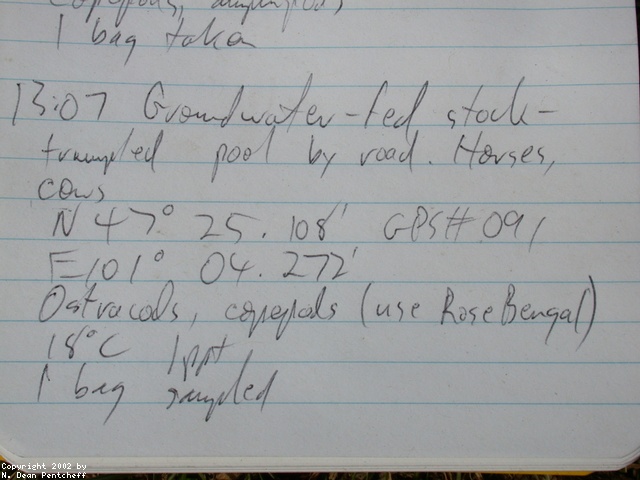 copepods, amphipods
1 bag taken
13:07 Groundwater-fed stock-
trampled pool by road. Horses,
cows
N 47° 25.108' GPS# 091
E 101° 04.272'
Ostracods, copepods (use Rose Bengal)
18°C 1ppt
1 bag sampled
Copyright 2002 by
N. Dean Pentcheff